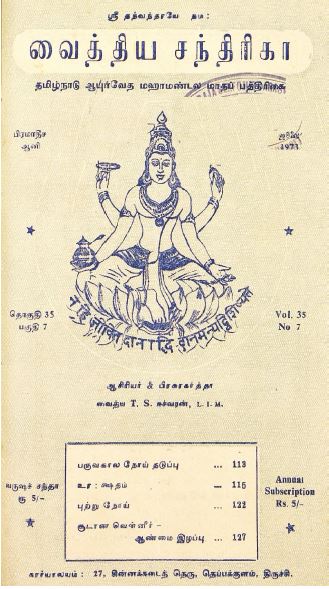 ஸ்ரீ தந்வந்தரயே நம:
வைத்திய சந்திரிகா
தமிழ்நாடு ஆயுர்வேத மஹாமண்டல மாதப் பத்திரிகை
பிரமாதீச
ஆனி
ஜூலை
1973
தொகுதி 35
பகுதி 7
Vol. 35
No 7
நஹி ஜீவித தானாத்தி தானமன்யத்விசிஷ்யதே
ஆசிரியர் & பிரசுரகர்த்தா
வைத்ய T. S. ஈச்வரன், L. I. M.
வருஷச் சந்தா
ரூ 5/-
பருவகால நோய் தடுப்பு ... 113
உர : க்ஷதம் ... 115
புற்று நோய் ... 122
சூடான வெள்ளீர் -
ஆண்மை இழப்பு ... 127
Annual
Subscription
Rs. 5/-
கார்யாலயம் : 27, சின்னக்கடைத் தெரு, தெப்பக்குளம், திருச்சி.